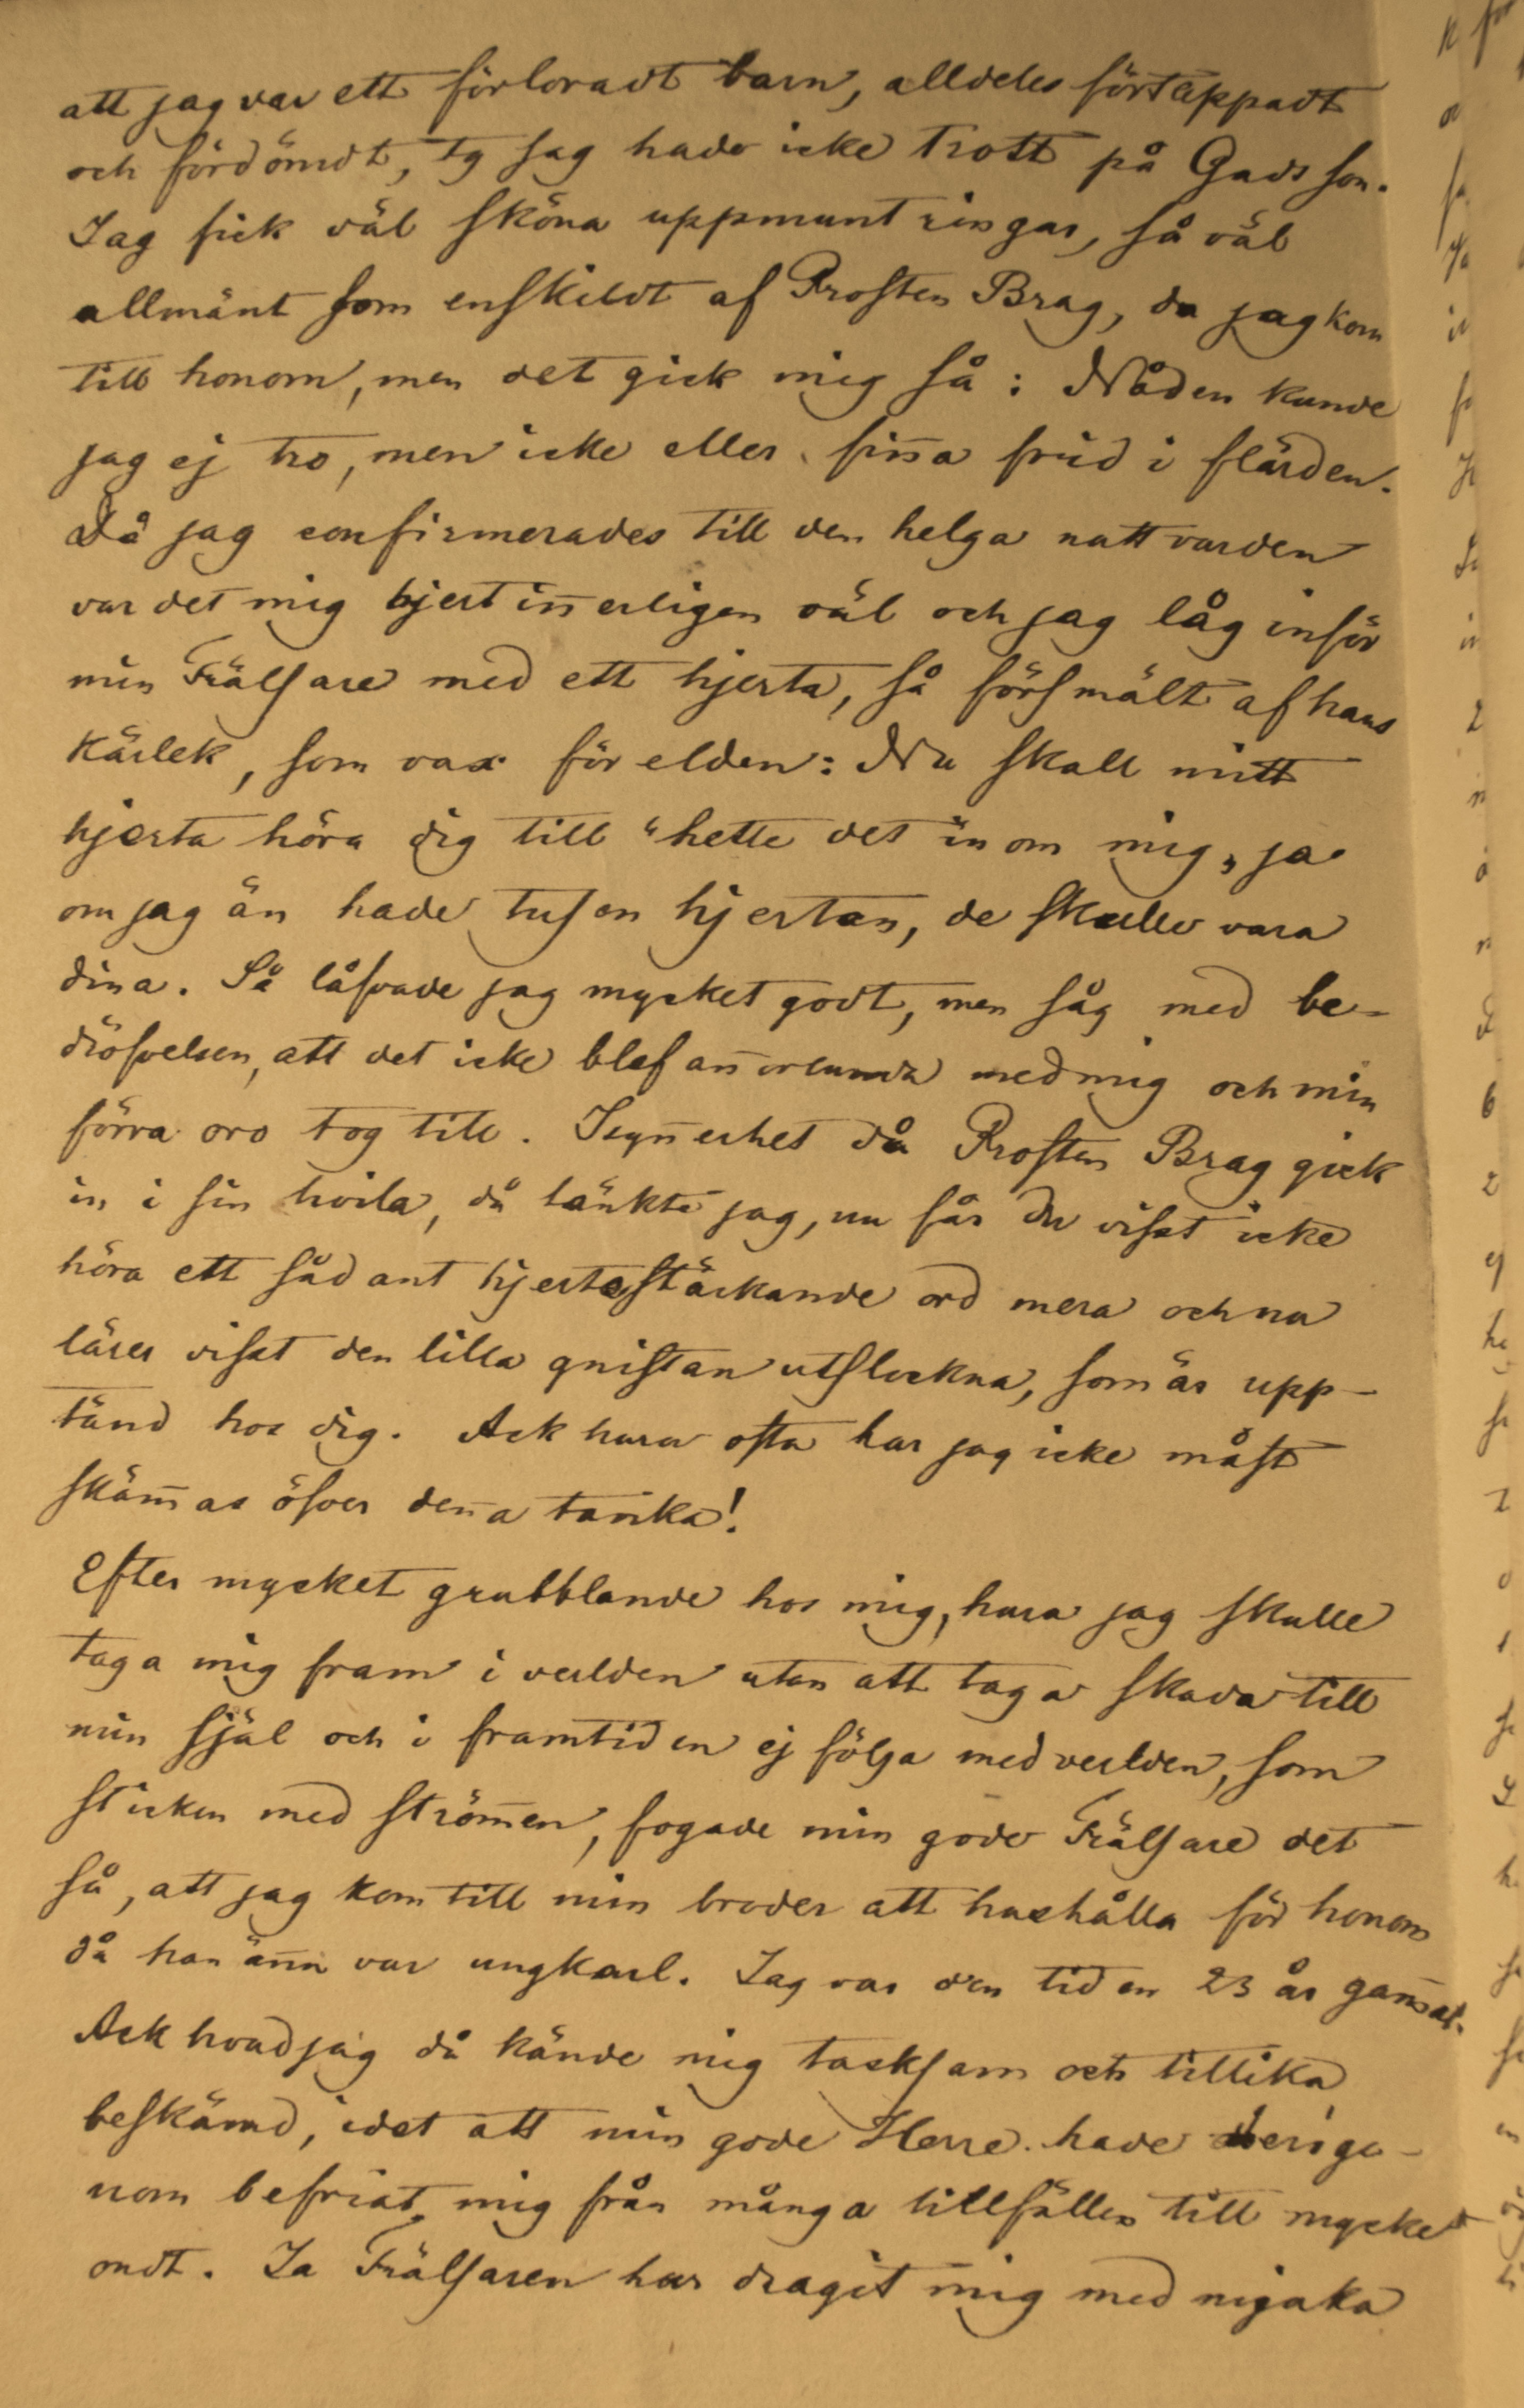 att jag var ett förloradt barn, alldeles förtappadt
och fördömdt, ty jag hade icke trott på Guds son.
Jag fick väl sköna uppmuntringar, så väl
allmänt som enskildt af Prosten Brag, da jag kom
till honom, men det gick mig så: Nåden kunde
jag ej tro, men icke eller fin̄a frid i flärden.
Då jag confirmerades till den helga nattvarden
var det mig hjertin̄erligen väl och jag låg inför
min Frälsare med ett hjerta, så försmält af hans
kärlek, som vax för elden: Nu skall mitt
hjerta höra dig till "hette det inom mig, ja
om jag än hade tusen hjertan, de skulle vara
dina. Så låfvade jag mycket godt, men såg med be-
dröfvelsen, att det icke blef an̄orlunda med mig och min
förra oro tog till. Isyn̄erhet då Prosten Brag gick
in i sin hvila, då tänkte jag, nu får du visst icke
höra ett sådant hjertestärkande ord mera och nu
lärer visst den lilla gnistan utslockna, som är upp-
tänd hos dig. Ack huru ofta har jag icke måst
skäm̄as öfver den̄a tanka!
Efter mycket grubblande hos mig, huru jag skulle
taga mig fram i verlden utan att taga skada till
min själ och i framtiden ej följa med verlden, som
stickan med ström̄en, fogade min gode Frälsare det
så, att jag kom till min broder att hushålla för honom
då han än̄n var ungkarl. Jag var den tiden 23 år gam̄al.
Ack hvad jag då kände mig tacksam och tillika
beskämd, idet att min gode Herre hade derige-
nom befriat mig från många tillfällen till mycket
ondt. Ja Frälsaren har dragit mig med mjuka